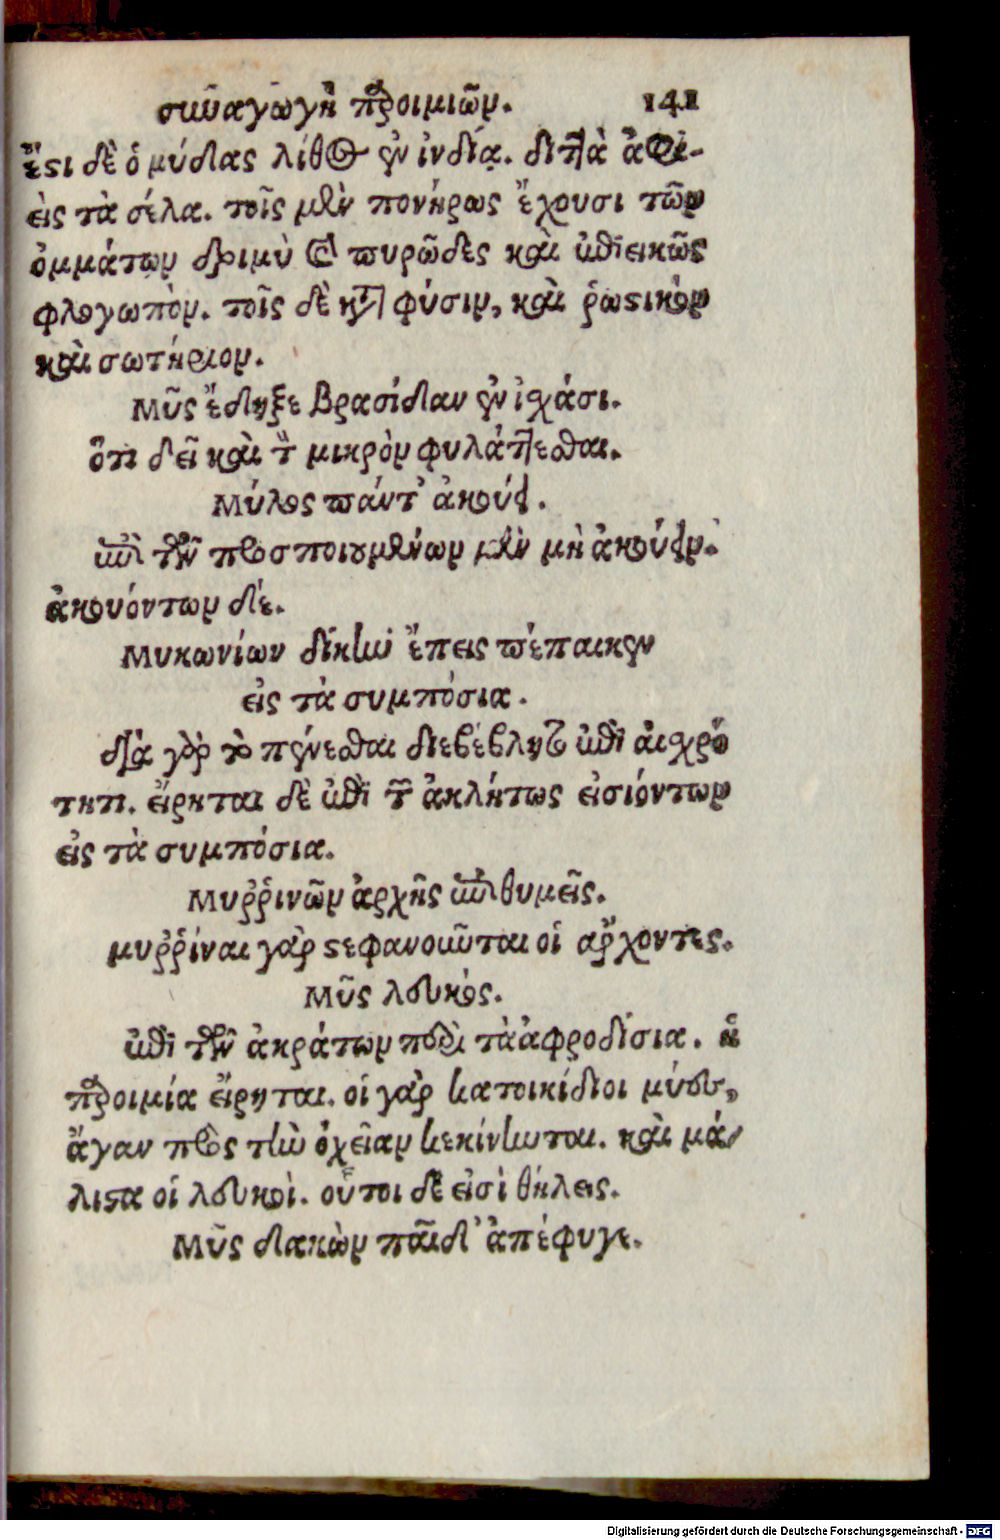 συναγωγὴ παροιμιῶν. 141
ἔστι δὲ ὁ μύδας λίθος ἐν ἰνδίᾳ. διττὰ ἀφι-
εὶς τὰ σέλα. τοῖς μὲν πονήρως ἔχουσι τῶν
ὀμμάτων δριμὺ καὶ πυρῶδες καὶ ἐπιεικῶς
φλογωπὸν. τοῖς δὲ κατὰ φύσιν, καὶ ῥωστικὸν
καὶ σωτήριον.
Μῦς ἔδηξε βρασίδαν ἐν ἰσχάσι.
ὅτι δεῖ καὶ τὸ μικρὸν φυλάττεσθαι.
Μύλος πάντ' ἀκούει.
ἐπὶ τῶν προσποιουμένων μὲν μὴ ἀκούειν.
ἀκουόντων δέ.
Μυκωνίων δίκην ἔπεισπέπαικεν
εἰς τὰ συμπόσια.
διὰ γὰρ τὸ πένεσθαι διεβέβληντο ἐπὶ αἰσχρό
τητι. εἴρηται δὲ ἐπὶ τῶν ἀκλήτως εἰσιόντων
εἰς τὰ συμπόσια.
Μυῤῥινῶν ἀρχῆς ἐπιθυμεῖς.
μυῤῥίναι γὰρ στεφανοῦνται οἱ ἄρχοντες.
Μῦς λευκός.
ἐπὶ τῶν ἀκράτων περὶ τὰ ἀφροδίσια. ἡ
παροιμία εἴρηται. οἱ γὰρ κατοικίδιοι μύες,
ἄγαν πρὸς τὴν ὀχείαν κεκίνηνται. καὶ μά-
λιστα οἱ λευκοὶ. οὗτοι δέ εἰσὶ θήλεις.
Μῦς δακὼν παῖδ' ἀπέφυγε.
Digitalisierung gefördert durch die Deutsche Forschungsgemeinschaft - DFG